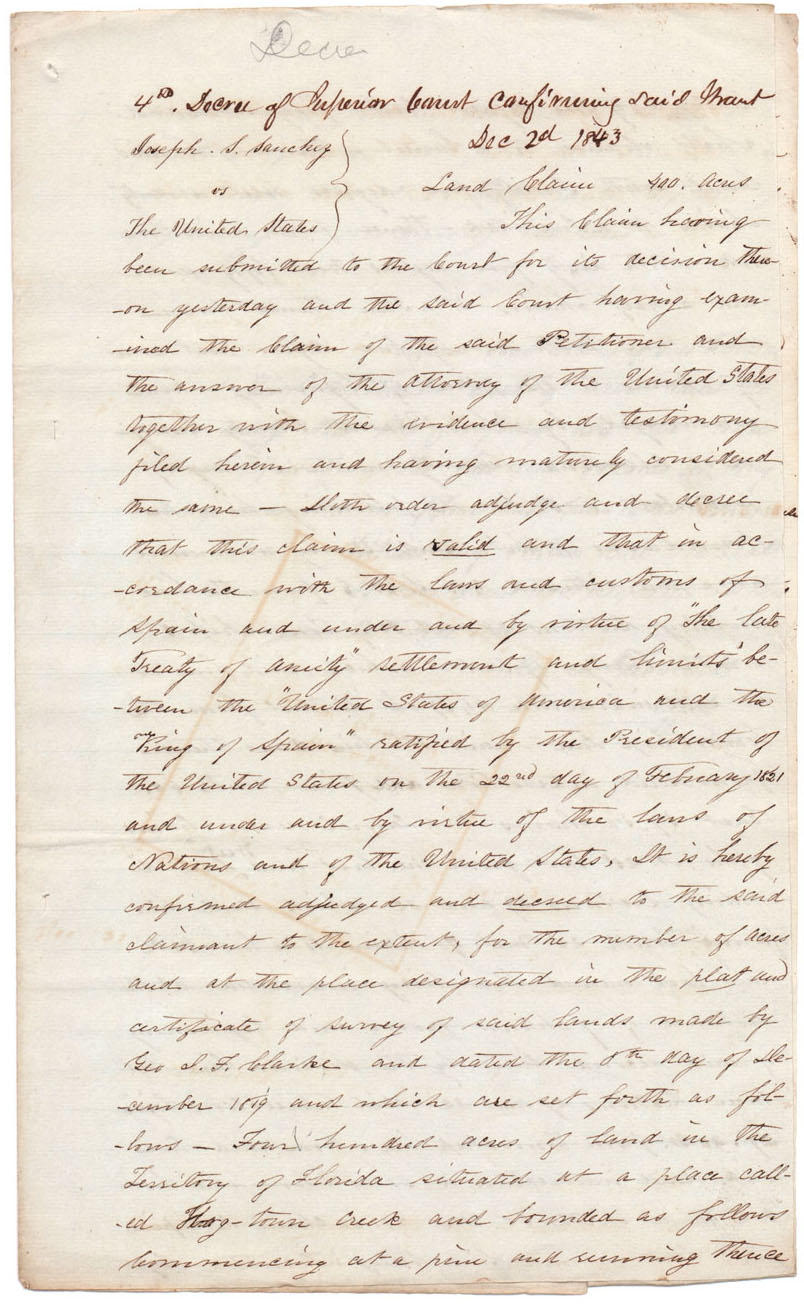 Decre
4th. Decree of Superior Court confirming said Grant
Dec 2d 1843
Joseph. S. Sanchez
vs
Land Claim 400. acres
The United States
This Claim having
been submitted to the Court for its decision there-
-on yesterday and the said Court having exam-
-ined the Claim of the said Petitioner and
the answer of the attorney of the United States
together with the evidence and testimony
filed herein and having maturely considered
the same – Doth order adjudge and decree
that this claim is valid and that in ac-
-cordance with the laws and customs of
Spain and under and by virtue of "the late
Treaty of amity" settlement and limits" be-
-tween the "United States of America and the
King of Spain" ratified by the President of
the United States on the 22nd day of February 1821
and under and by virtue of the laws of
Nations and of the United States, It is hereby
confirmed adjudged and decreed to the said
claimant to the extent, for the number of acres
and at the place designated in the plat and
certificate of survey of said lands made by
Geo J. F. Clarke and dated the 8th day of De-
-cember 1819 and which are set forth as fol-
-lows – Four hundred acres of land in the
Territory of Florida situated at a place call-
-ed Hog-town Creek and bounded as follows
Commencing at a pine and running thence